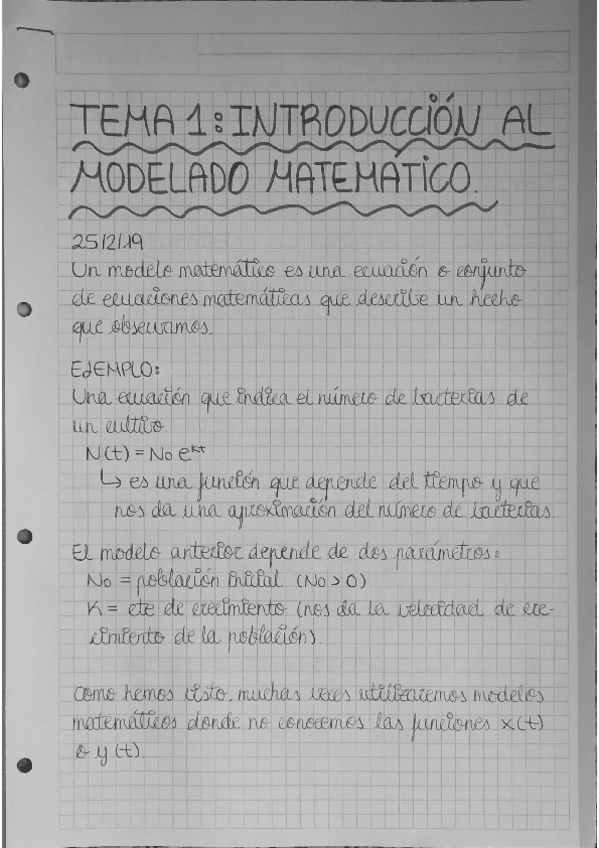 TEMA 1: INTRODUCCIÓN AL
MODELADO MATEMÁTICO.
25/2/19
Un modelo matemático es una ecuación o conjunto
de ecuaciones matemáticas que describe un hecho
que observamos.
EJEMPLO:
Una ecuación que indica el número de bacterias de
un cultivo
N(t) = N₀ eᴷᵗ
↳ es una función que depende del tiempo y que
nos da una aproximación del número de bacterias
El modelo anterior depende de dos parámetros:
N₀ = población inicial (N₀ > 0)
K = cte de crecimiento (nos da la velocidad de cre-
cimiento de la población).
Como hemos visto, muchas veces utilizaremos modelos
matemáticos donde no conocemos las funciones x(t)
o y(t).